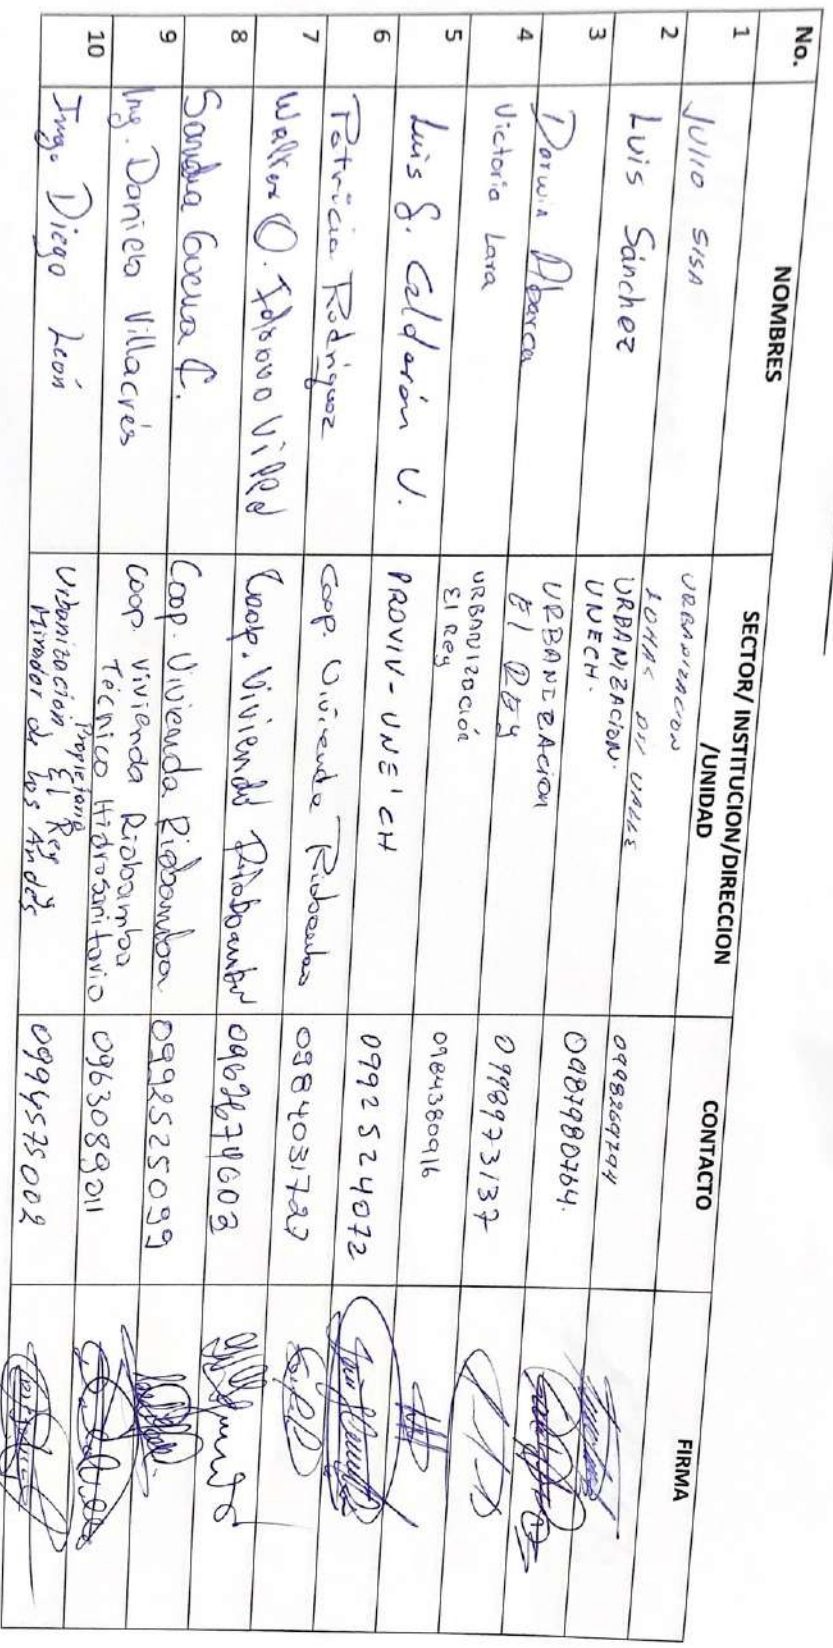 No. NOMBRES SECTOR/ INSTITUCION/DIRECCION CONTACTO FIRMA
/UNIDAD
1 JULIO SISA URBANIZACION
LOMAS DEL VALLE 0998269794
2 Luis Sánchez URBANIZACION.
UNECH. 0987980764.
3 Darwin Abarca URBANIZACION
El REY 0998973137
4 Victoria Lara URBANIZACIÓN
El Rey 0984380916
5 Luis G. Calderón V. PROVIV-UNE'CH 0992524072
6 Patricia Rodríguez Coop. Vivienda Riobamba 0984031727
7 Walter O. Villa Coop. Vivienda Riobamba
8 Sandra C. Coop. Vivienda Riobamba 0992525099
9 Ing. Daniela Villacrés Coop. Vivienda Riobamba
Técnico Hidrosanitario 0963089011
10 Ingo Diego León Propietario
Urbanización El Rey
Mirador de los Andes 0994575002